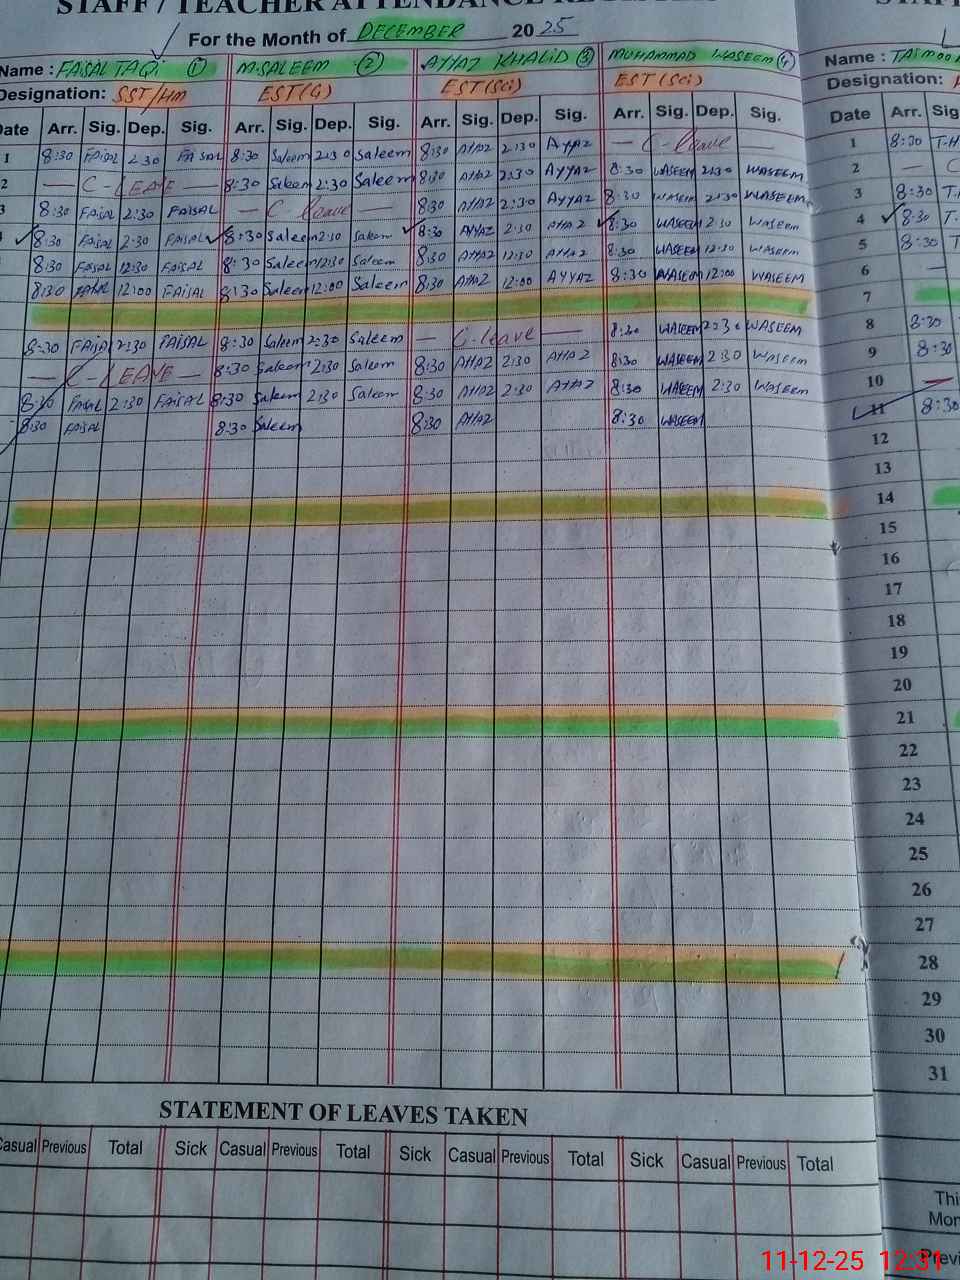 STAFF / TEACHER ATTENDANCE
For the Month of DECEMBER 2025
Name : FAISAL TAQI ① M.SALEEM ② AYYAZ KHALID ③ MUHAMMAD WASEEM ④ Name :
Designation: SST/HM EST(G) EST(Sci) EST(Sci) Designation:
Date Arr. Sig. Dep. Sig. Arr. Sig. Dep. Sig. Arr. Sig. Dep. Sig. Arr. Sig. Dep. Sig. Date Arr.
1 8:30 FAISAL 2:30 FAISAL 8:30 Saleem 2:30 Saleem 8:30 AYYAZ 2:30 AYYAZ — C-leave — 1 8:30
2 — C-LEAVE — 8:30 Saleem 2:30 Saleem 8:30 AYYAZ 2:30 AYYAZ 8:30 WASEEM 2:30 WASEEM 2
3 8:30 FAISAL 2:30 FAISAL — C leave — 8:30 AYYAZ 2:30 AYYAZ 8:30 WASEEM 2:30 WASEEM 3 8:30
8:30 FAISAL 2:30 FAISAL 8:30 Saleem 2:30 Saleem 8:30 AYYAZ 2:30 AYYAZ 8:30 WASEEM 2:30 WASEEM 4 8:30
8:30 FAISAL 12:30 FAISAL 8:30 Saleem 12:30 Saleem 8:30 AYYAZ 12:30 AYYAZ 8:30 WASEEM 12:30 WASEEM 5 8:30
8:30 FAISAL 12:00 FAISAL 8:30 Saleem 12:00 Saleem 8:30 AYYAZ 12:00 AYYAZ 8:30 WASEEM 12:00 WASEEM 6
7
8:30 FAISAL 2:30 FAISAL 8:30 Saleem 2:30 Saleem — C-leave — 8:30 WASEEM 2:30 WASEEM 8 8:30
— C-LEAVE — 8:30 Saleem 2:30 Saleem 8:30 AYYAZ 2:30 AYYAZ 8:30 WASEEM 2:30 WASEEM 9 8:30
8:30 FAISAL 2:30 FAISAL 8:30 Saleem 2:30 Saleem 8:30 AYYAZ 2:30 AYYAZ 8:30 WASEEM 2:30 WASEEM 10
8:30 FAISAL 8:30 Saleem 8:30 AYYAZ 8:30 WASEEM 11 8:30
12
13
14
15
16
17
18
19
20
21
22
23
24
25
26
27
28
29
30
31
STATEMENT OF LEAVES TAKEN
Casual Previous Total Sick Casual Previous Total Sick Casual Previous Total Sick Casual Previous Total
11-12-25 12:31